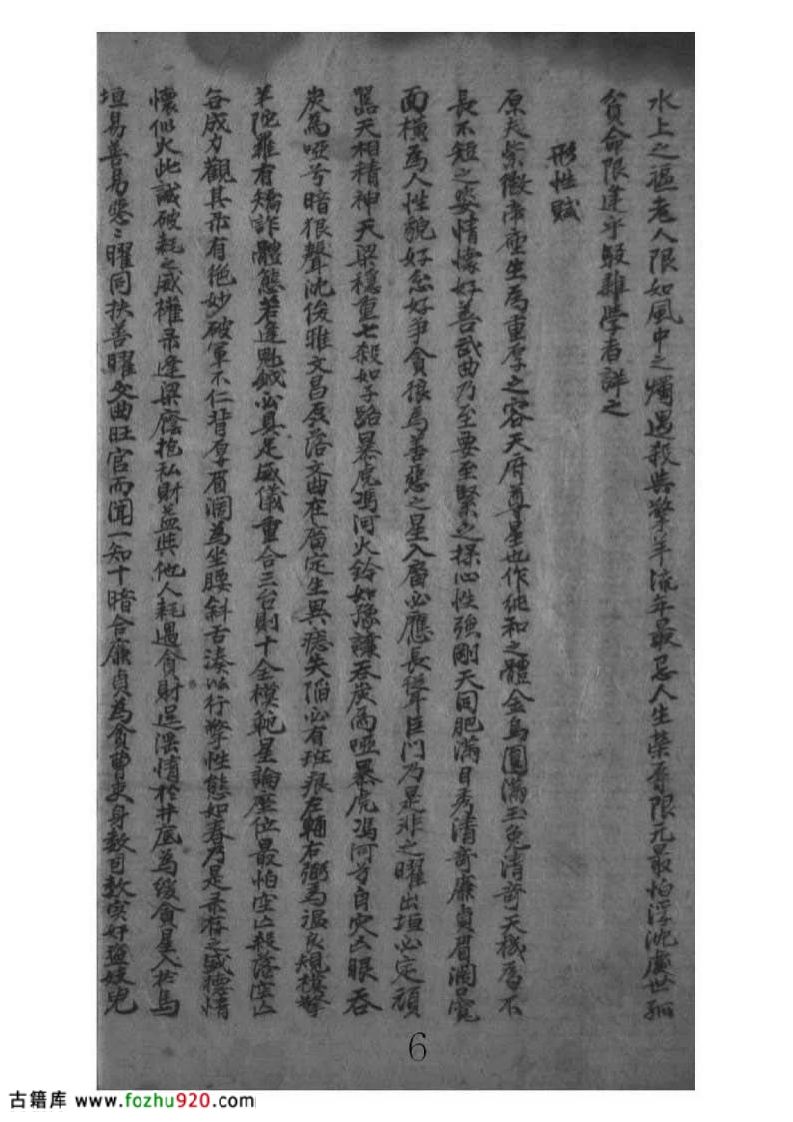 水上之漚老人限如風中之燭遇殺與擎羊流年最忌人生榮辱限元最怕浮沈處世孤
貧命限逢乎駁雜學者詳之
形性賦
原夫紫微帝座生為重厚之容天府尊星也作純和之體金烏圓滿玉兔清奇天機為不
長不短之姿情懷好善武曲乃至要至緊之操心性強剛天同肥滿目秀清奇廉貞眉濶口寬
面橫為人性貌好忿好爭貪狼為善惡之星入廟必應長聳巨門乃是非之曜出垣必定頑
嚚天相精神天梁穩重七殺如子路暴虎馮河火鈴如豫讓吞炭為啞暴虎馮河兮目突凶眼吞
炭為啞兮暗狠聲沈俊雅文昌磊落文曲在廟定生異痣失陷必有班痕左輔右弼為溫良規模擎
羊陀羅有矯詐體態若逢魁鉞必具足威儀重合三台則十全模範星論座位最怕空亡殺落空亡
各成力觀其形有艳妙破軍不仁背厚眉濶為坐腰斜舌湊以行擎性態如春乃是祿存之盛德情
懷似火此誠破耗之威權祿逢梁廕抱私財益與他人耗遇貪財逞淫情於井底為緩貪星入於馬
垣易善易惡惡曜同扶善曜文曲旺宮而聞一知十暗合廉貞為貪曹吏身數司數實好盜妓兒
6
古籍库 www.fozhu920.com